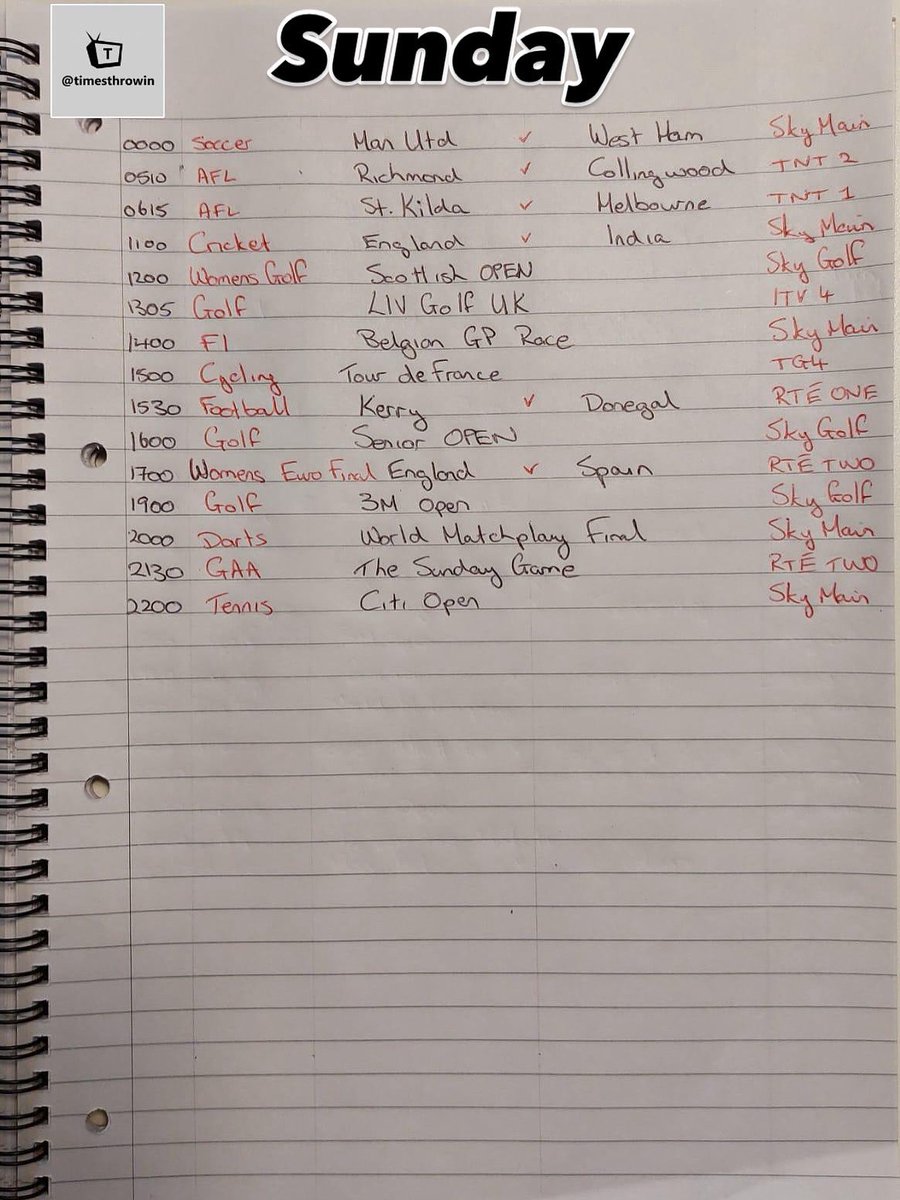 Sunday
T
@timesthrowin
0000 Soccer Man Utd v West Ham Sky Main
0510 AFL Richmond v Collingwood TNT 2
0615 AFL St. Kilda v Melbourne TNT 1
1100 Cricket England v India Sky Main
1200 Womens Golf Scottish OPEN Sky Golf
1305 Golf LIV Golf UK ITV 4
1400 F1 Belgian GP Race Sky Main
1500 Cycling Tour de France TG4
1530 Football Kerry v Donegal RTÉ ONE
1600 Golf Senior OPEN Sky Golf
1700 Womens Euro Final England v Spain RTÉ TWO
1900 Golf 3M Open Sky Golf
2000 Darts World Matchplay Final Sky Main
2130 GAA The Sunday Game RTÉ TWO
2200 Tennis Citi Open Sky Main